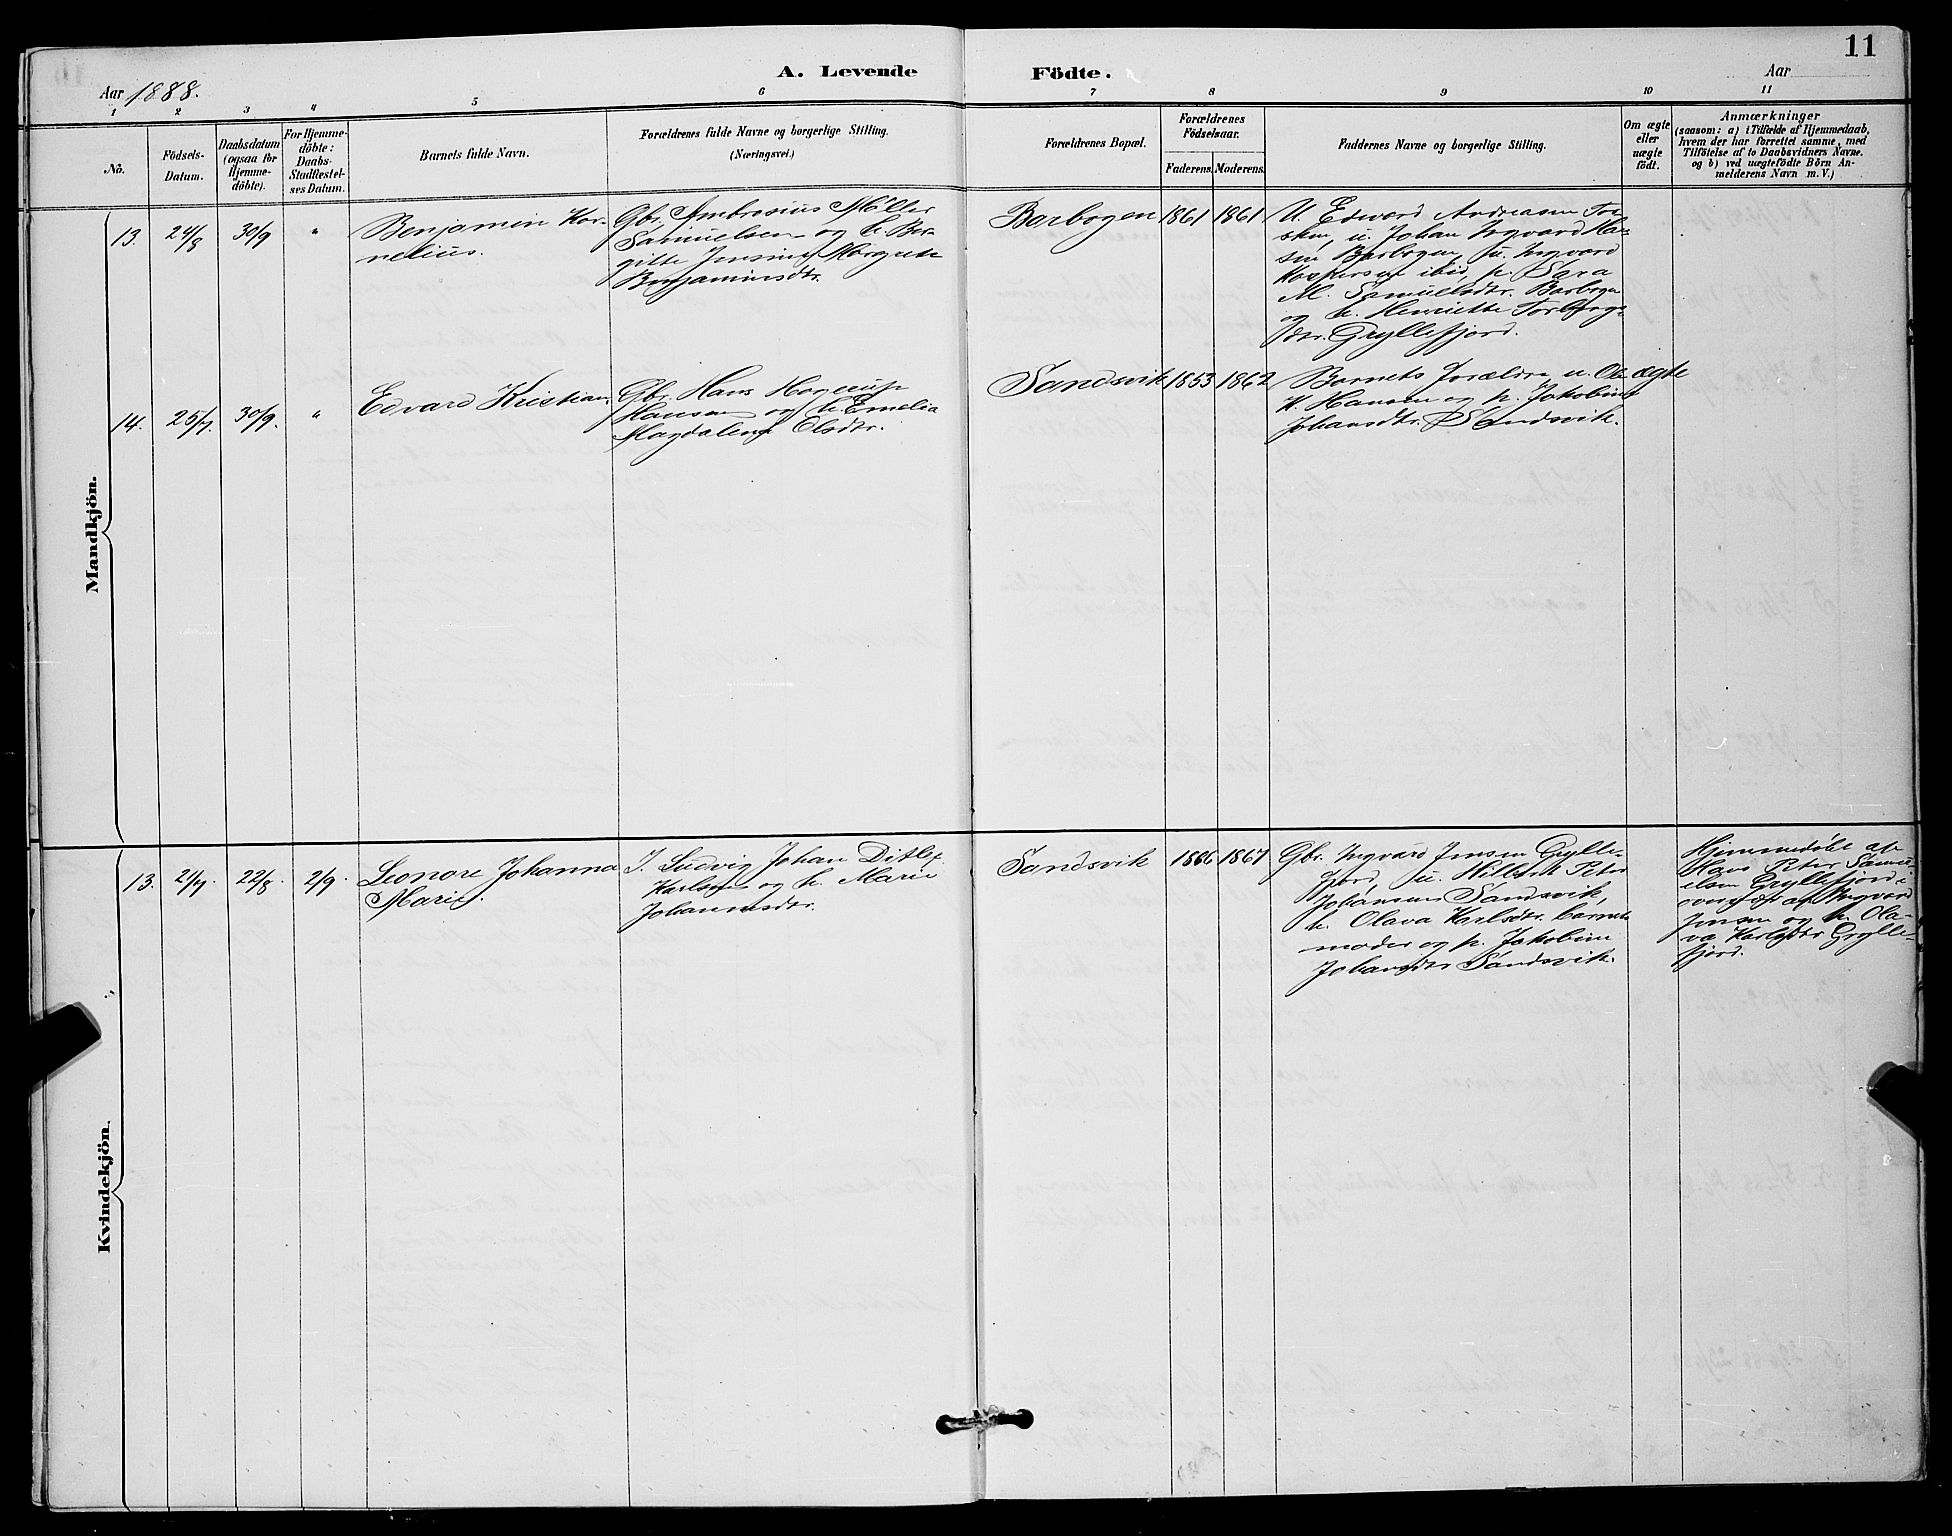 11
A. Levende Födte.
Aar 1888.
Aar
1 2 3 4 5 6 7 8 9 10 11
No.
Födsels-
Datum.
Daabsdatum
(ogsaa for
Hjemme-
döbte).
For Hjemme-
döbte:
Daabs-
Stadfæstel-
ses Datum.
Barnets fulde Navn.
Forældrenes fulde Navne og borgerlige Stilling.
(Næringsvei.)
Forældrenes Bopæl.
Forældrenes
Födselsaar.
Faderens. Moderens.
Faddernes Navne og borgerlige Stilling.
Om ægte
eller
uægte
födt.
Anmærkninger
(saasom: a) i Tilfælde af Hjemmedaab,
hvem der har forrettet samme, med
Tilföielse af to Daabsvidners Navne.
og b) ved uægtefödte Börn An-
melderens Navn m. V.)
Mandkjön.
13.
24/8
30/9
"
Benjamin Kor-
nelius.
Gbr. Ambrosius Möller
Samuelsen og h. Ber-
gitte Jensine Margrete
Benjaminsdtr.
Barbogen
1861
1861
U. Edvard Andreasen Tor-
sken, u. Johan Ingvard Han-
sen Barbogen, u. Ingvard
Kaspersen ibid, p. Sara
M. Samuelsdtr. Barbogen
og h. Henriette Torbergs-
dtr. Gryllefjord.
14.
25/7
30/9.
"
Edvard Kristian.
Gbr. Hans Hagerup
Hansen og h. Emelia
Magdalena Elsdtr.
Sandsvik
1853
1862
Barnets Forældre u. Ole
K. Hansen og p. Jakobine
Johansdtr. Sandsvik.
ægte
Kvindekjön.
13.
2/7.
22/8.
2/9.
Leonore Johanna
Marie.
I. Ludvig Johan Ditlef
Karlsen og h. Marie
Johannesdtr.
Sandsvik
1866
1867
Gbr. Ingvard Jensen Grylle-
fjord, u. Peter
Johansen Sandsvik,
h. Olava Karlsdtr. barnets
moder og p. Jakobine
Johansdtr Sandsvik.
Hjemmedöbt af
Hans Peter Samu-
elsen Gryllefjord i
overvær af Ingvard
Jensen og h. Ola-
va Karlsdtr Grylle-
fjord.